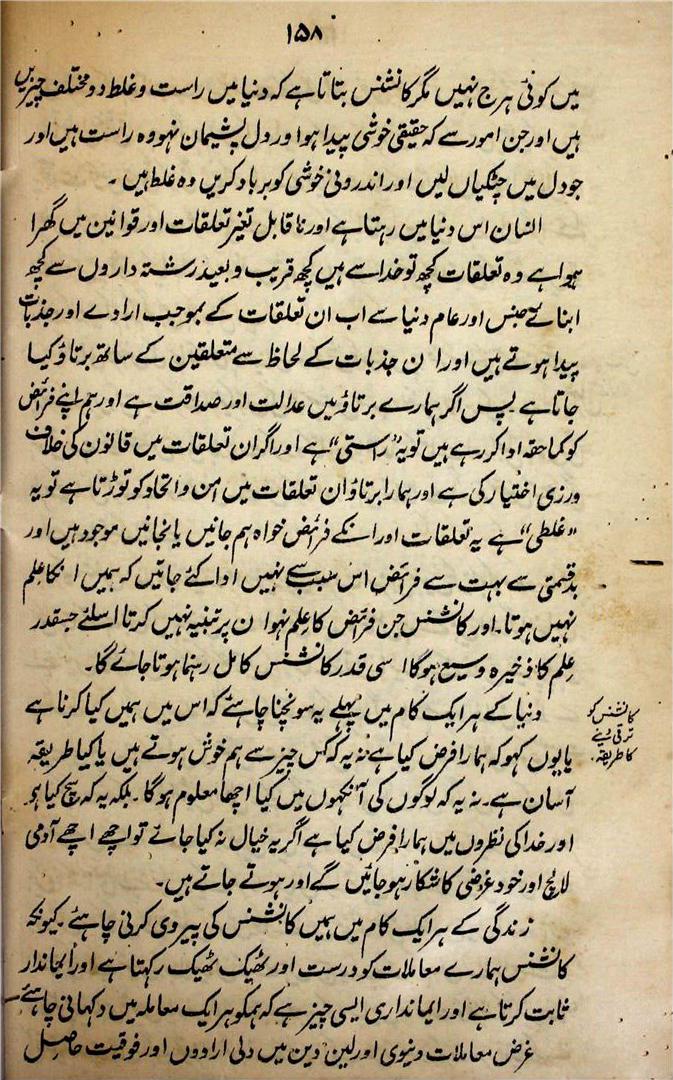 ۱۵۸
میں کوئی ہرج نہیں مگر کانشنس بتاتا ہے کہ دنیا میں راست و غلط دو مختلف چیزیں
ہیں اور جن امور سے کہ حقیقی خوشی پیدا ہو اور دل پشیمان نہو وہ راست ہیں اور
جو دل میں چٹکیاں لیں اور اندرونی خوشی کو برباد کریں وہ غلط ہیں ۔
انسان اس دنیا میں رہتا ہے اور ناقابل تغیر تعلقات اور قوانین میں گھرا
ہوا ہے وہ تعلقات کچھ تو خدا سے ہیں کچھ قریب و بعید رشتہ داروں سے کچھ
ابنائے جنس اور عام دنیا سے اب ان تعلقات کے بموجب ارادے اور جذبات
پیدا ہوتے ہیں اور ان جذبات کے لحاظ سے متعلقین کے ساتھ برتاؤ کیا
جاتا ہے پس اگر ہمارے برتاؤ میں عدالت اور صداقت ہے اور ہم اپنے فرائض
کو کماحقہ ادا کر رہے ہیں تو یہ "راستی" ہے اور اگر ان تعلقات میں قانون کی خلاف
ورزی اختیار کی ہے اور ہمارا برتاؤ ان تعلقات میں امن و اتحاد کو توڑتا ہے تو یہ
"غلطی" ہے یہ تعلقات اور انکے فرائض خواہ ہم جانیں یا نجانیں موجود ہیں اور
بدقسمتی سے بہت سے فرائض اس سبب سے نہیں ادا کئے جاتیں کہ ہمیں انکا علم
نہیں ہوتا۔ اور کانشنس جن فرائض کا علم نہو ان پر تنبیہ نہیں کرتا اسلئے جسقدر
علم کا ذخیرہ وسیع ہوگا اسی قدر کانشنس کامل رہنما ہوتا جائے گا۔
کانشنس کو
ترقی دینے
کا طریقہ۔
دنیا کے ہر ایک کام میں پہلے یہ سونچنا چاہئے کہ اس میں ہمیں کیا کرنا ہے
یا یوں کہو کہ ہمارا فرض کیا ہے نہ یہ کہ کس چیز سے ہم خوش ہوتے ہیں یا کیا طریقہ
آسان ہے۔ نہ یہ کہ لوگوں کی آنکھوں میں کیا اچھا معلوم ہوگا۔ بلکہ یہ کہ سچ کیا ہو
اور خدا کی نظروں میں ہمارا فرض کیا ہے اگر یہ خیال نہ کیا جائے تو اچھے اچھے آدمی
لالچ اور خود غرضی کا شکار ہو جائیں گے اور ہوتے جاتے ہیں۔
زندگی کے ہر ایک کام میں ہمیں کانشنس کی پیروی کرنی چاہئے۔ کیونکہ
کانشنس ہمارے معاملات کو درست اور ٹھیک ٹھیک رکہتا ہے اور ایماندار
ثابت کرتا ہے اور ایمانداری ایسی چیز ہے کہ ہمکو ہر ایک معاملہ میں دکہانی چاہئے۔
غرض معاملات دنیوی اور لین دین میں دلی ارادوں اور فوقیت حاصل